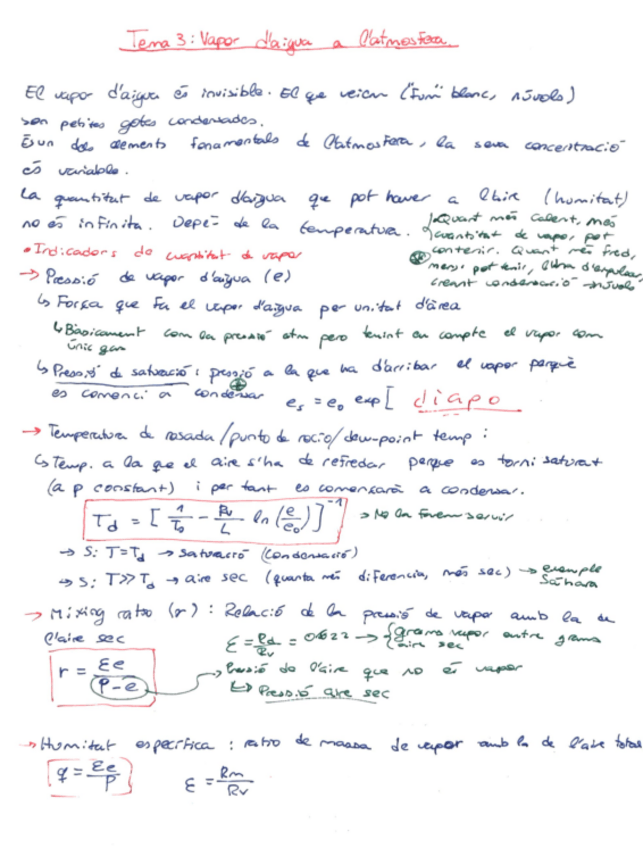 Tema 3: Vapor d'aigua a l'atmosfera
El vapor d'aigua és invisible. El que veiem ("fum" blanc, núvols)
son petites gotes condensades.
És un dels elements fonamentals de l'atmosfera, la seva concentració
és variable.
La quantitat de vapor d'aigua que pot haver a l'aire (humitat)
no és infinita. Depèn de la temperatura.
Quant més calent, més
quantitat de vapor, pot
contenir. Quant més fred,
menys pot tenir,
creant condensació → núvols
• Indicadors de quantitat de vapor
→ Pressió de vapor d'aigua (e)
↳ Força que fa el vapor d'aigua per unitat d'àrea
↳ Bàsicament com la pressió atm pero tenint en compte el vapor com
únic gas
↳ Pressió de saturació: pressió a la que ha d'arribar el vapor perquè
es comenci a condensar e_s = e_0 exp[ diapo
→ Temperatura de rosada/punto de rocio/dew-point temp:
↳ Temp. a la que el aire s'ha de refredar perque es torni saturat
(a p constant) i per tant es començarà a condensar.
T_d = [ 1/T_0 - R_v/L ln (e/e_0) ]^-1 → No la farem servir
→ Si T=T_d → saturació (condensació)
→ Si T>>T_d → aire sec (quanta més diferencia, més sec) → exemple
Sàhara
→ Mixing ratio (r): Relació de la pressió de vapor amb la de
l'aire sec
ε = R_d/R_v = 0.622 → grams vapor entre grams
aire sec
r = εe/(P-e) → Pressió de l'aire que no és vapor
↳ Pressió aire sec
→ Humitat específica: ratio de massa de vapor amb la de l'aire total
q = εe/P ε = Rm/Rv